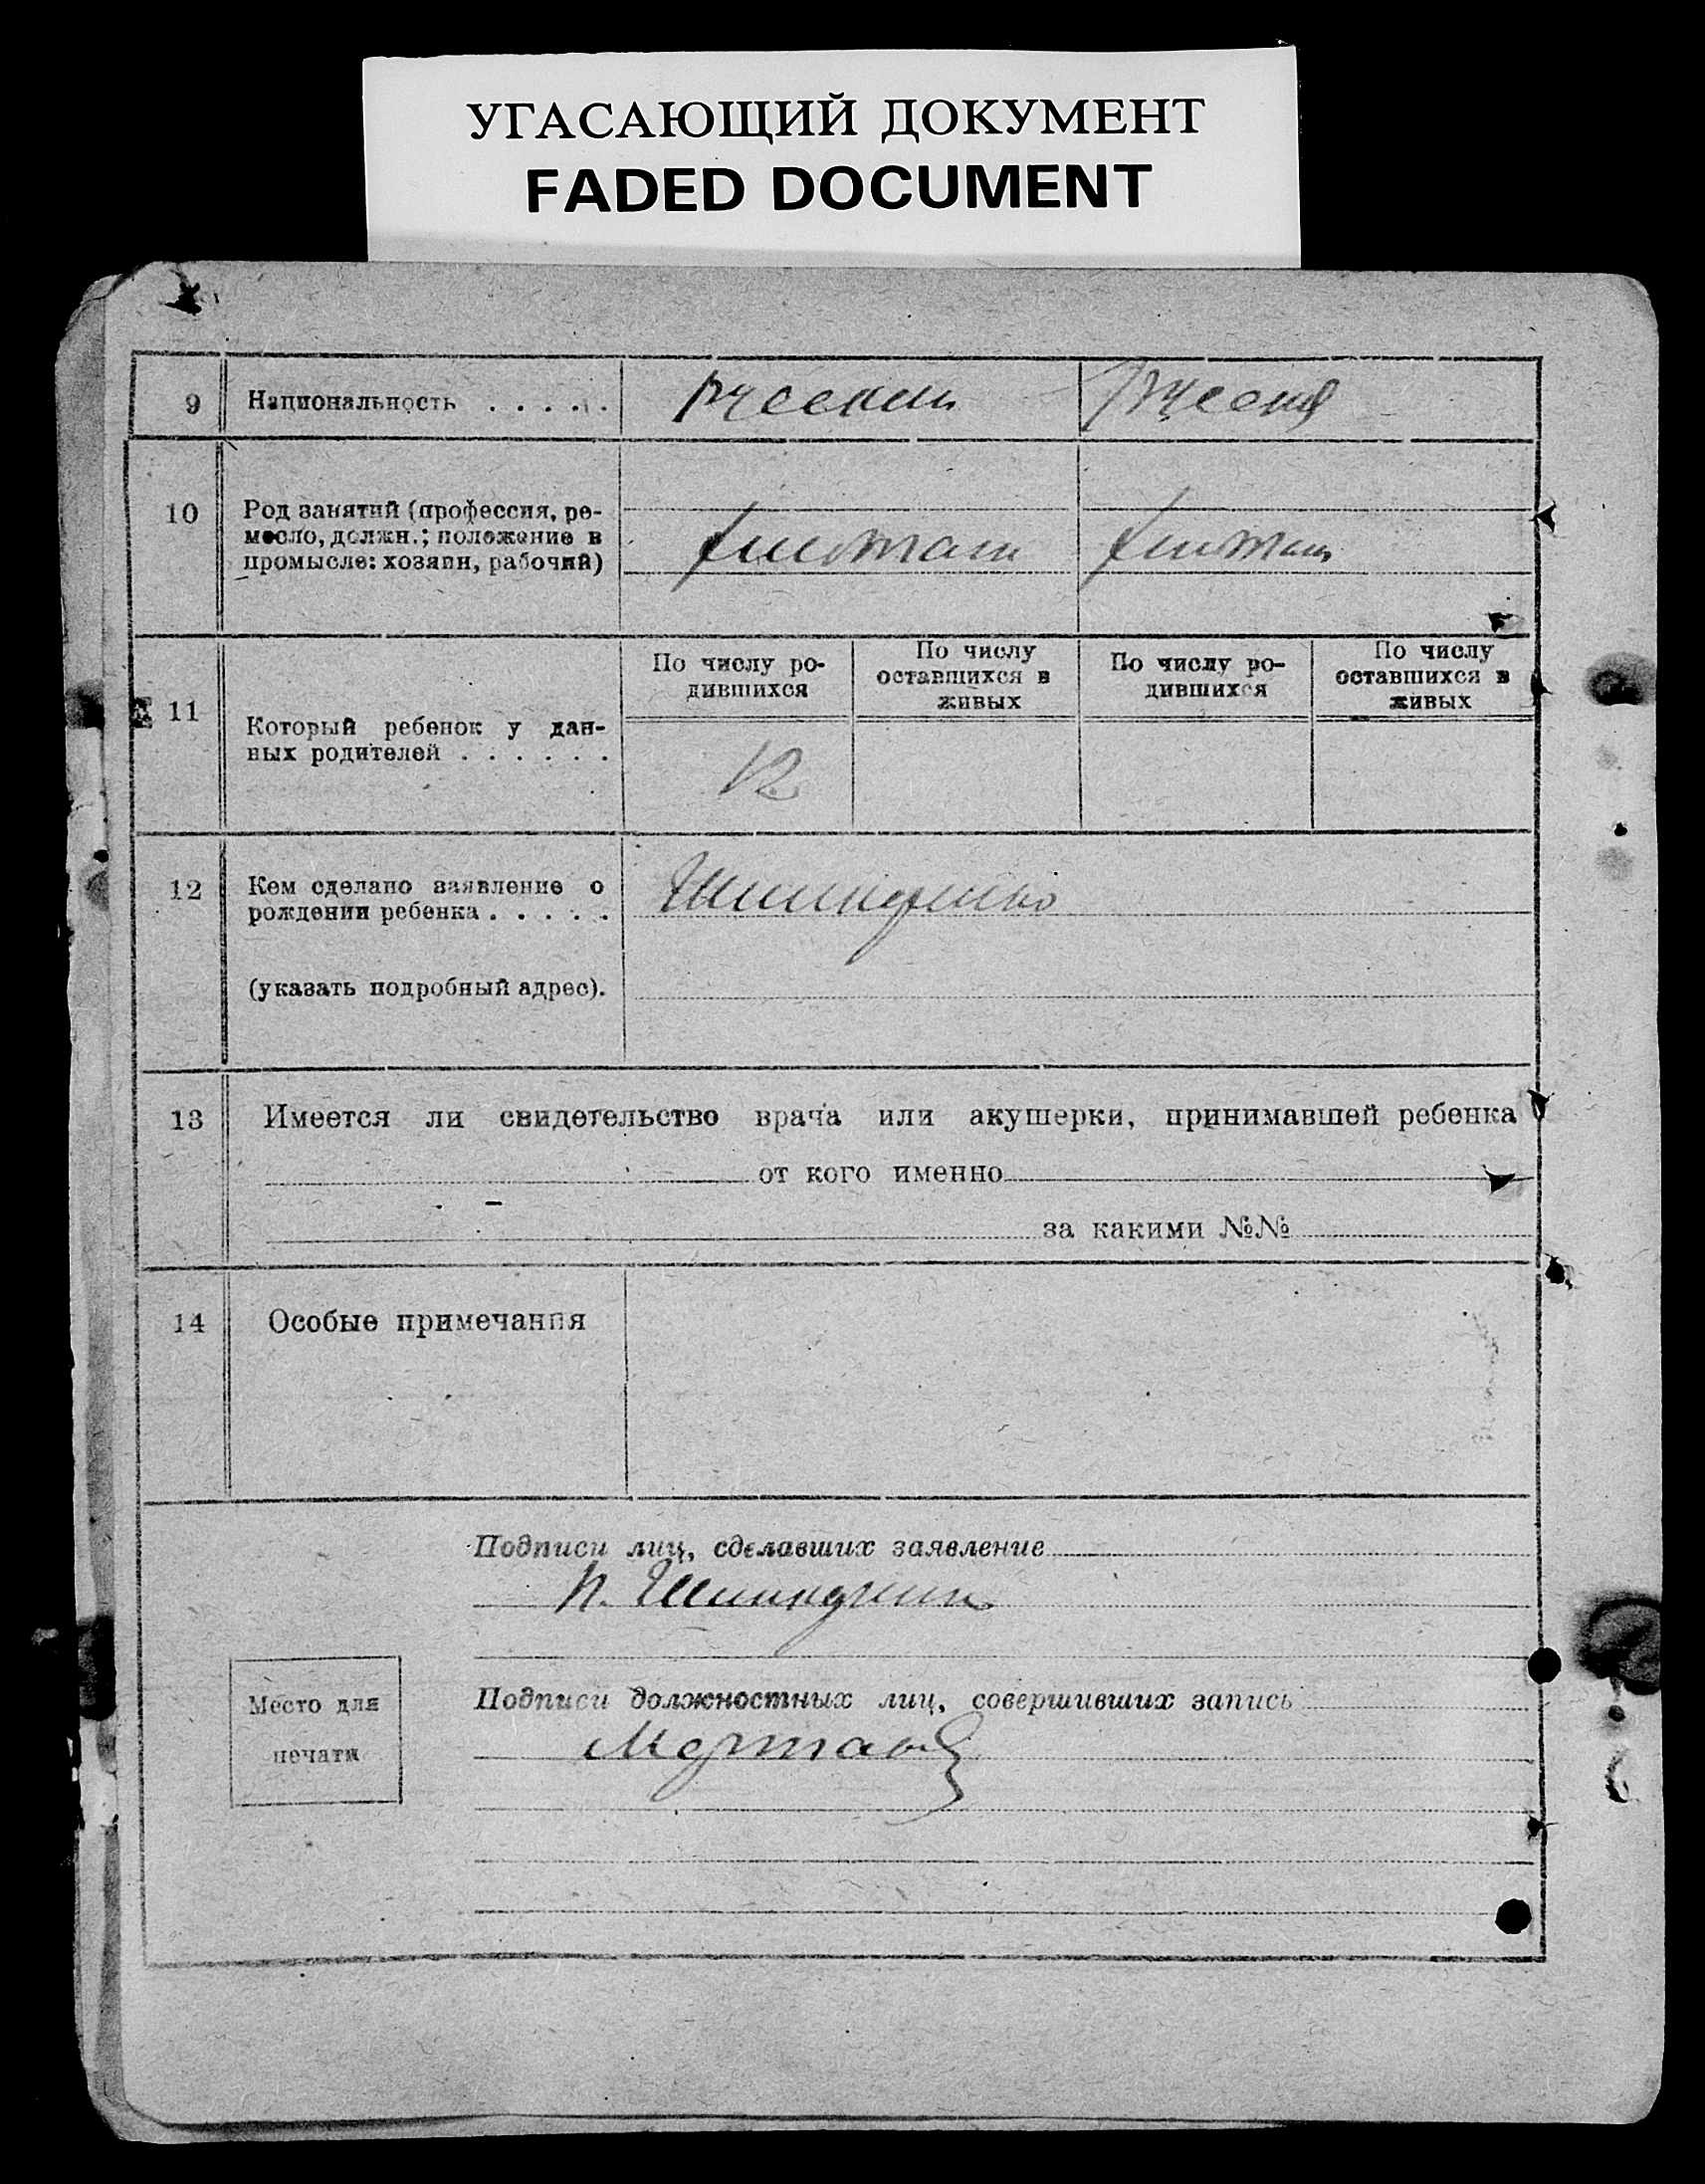 УГАСАЮЩИЙ ДОКУМЕНТ
FADED DOCUMENT
9 Национальность . . . . . русский русская
10 Род занятий (профессия, ре-
месло, должн.; положение в
промысле: хозяин, рабочий)
11 Который ребенок у дан-
ных родителей . . . . . .
По числу ро-
дившихся
По числу
оставшихся в
живых
По числу ро-
дившихся
По числу
оставшихся в
живых
12
12 Кем сделано заявление о
рождении ребенка . . . . .
(указать подробный адрес).
13 Имеется ли свидетельство врача или акушерки, принимавшей ребенка
от кого именно
за какими №№
14 Особые примечания
Подписи лиц, сделавших заявление
Место для
печати
Подписи должностных лиц, совершивших запись